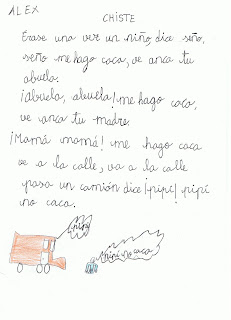 ALEX
CHISTE
Erase una vez un niño, dice seño,
seño me hago caca, ve anca tu
abuela.
¡abuela, abuela! me hago caca,
ve anca tu madre.
¡Mamá mamá! me hago caca
ve a la calle, va a la calle
pasa un camión dice ¡pipí! pipí
no caca.
¡pipi!
¡pipi no caca